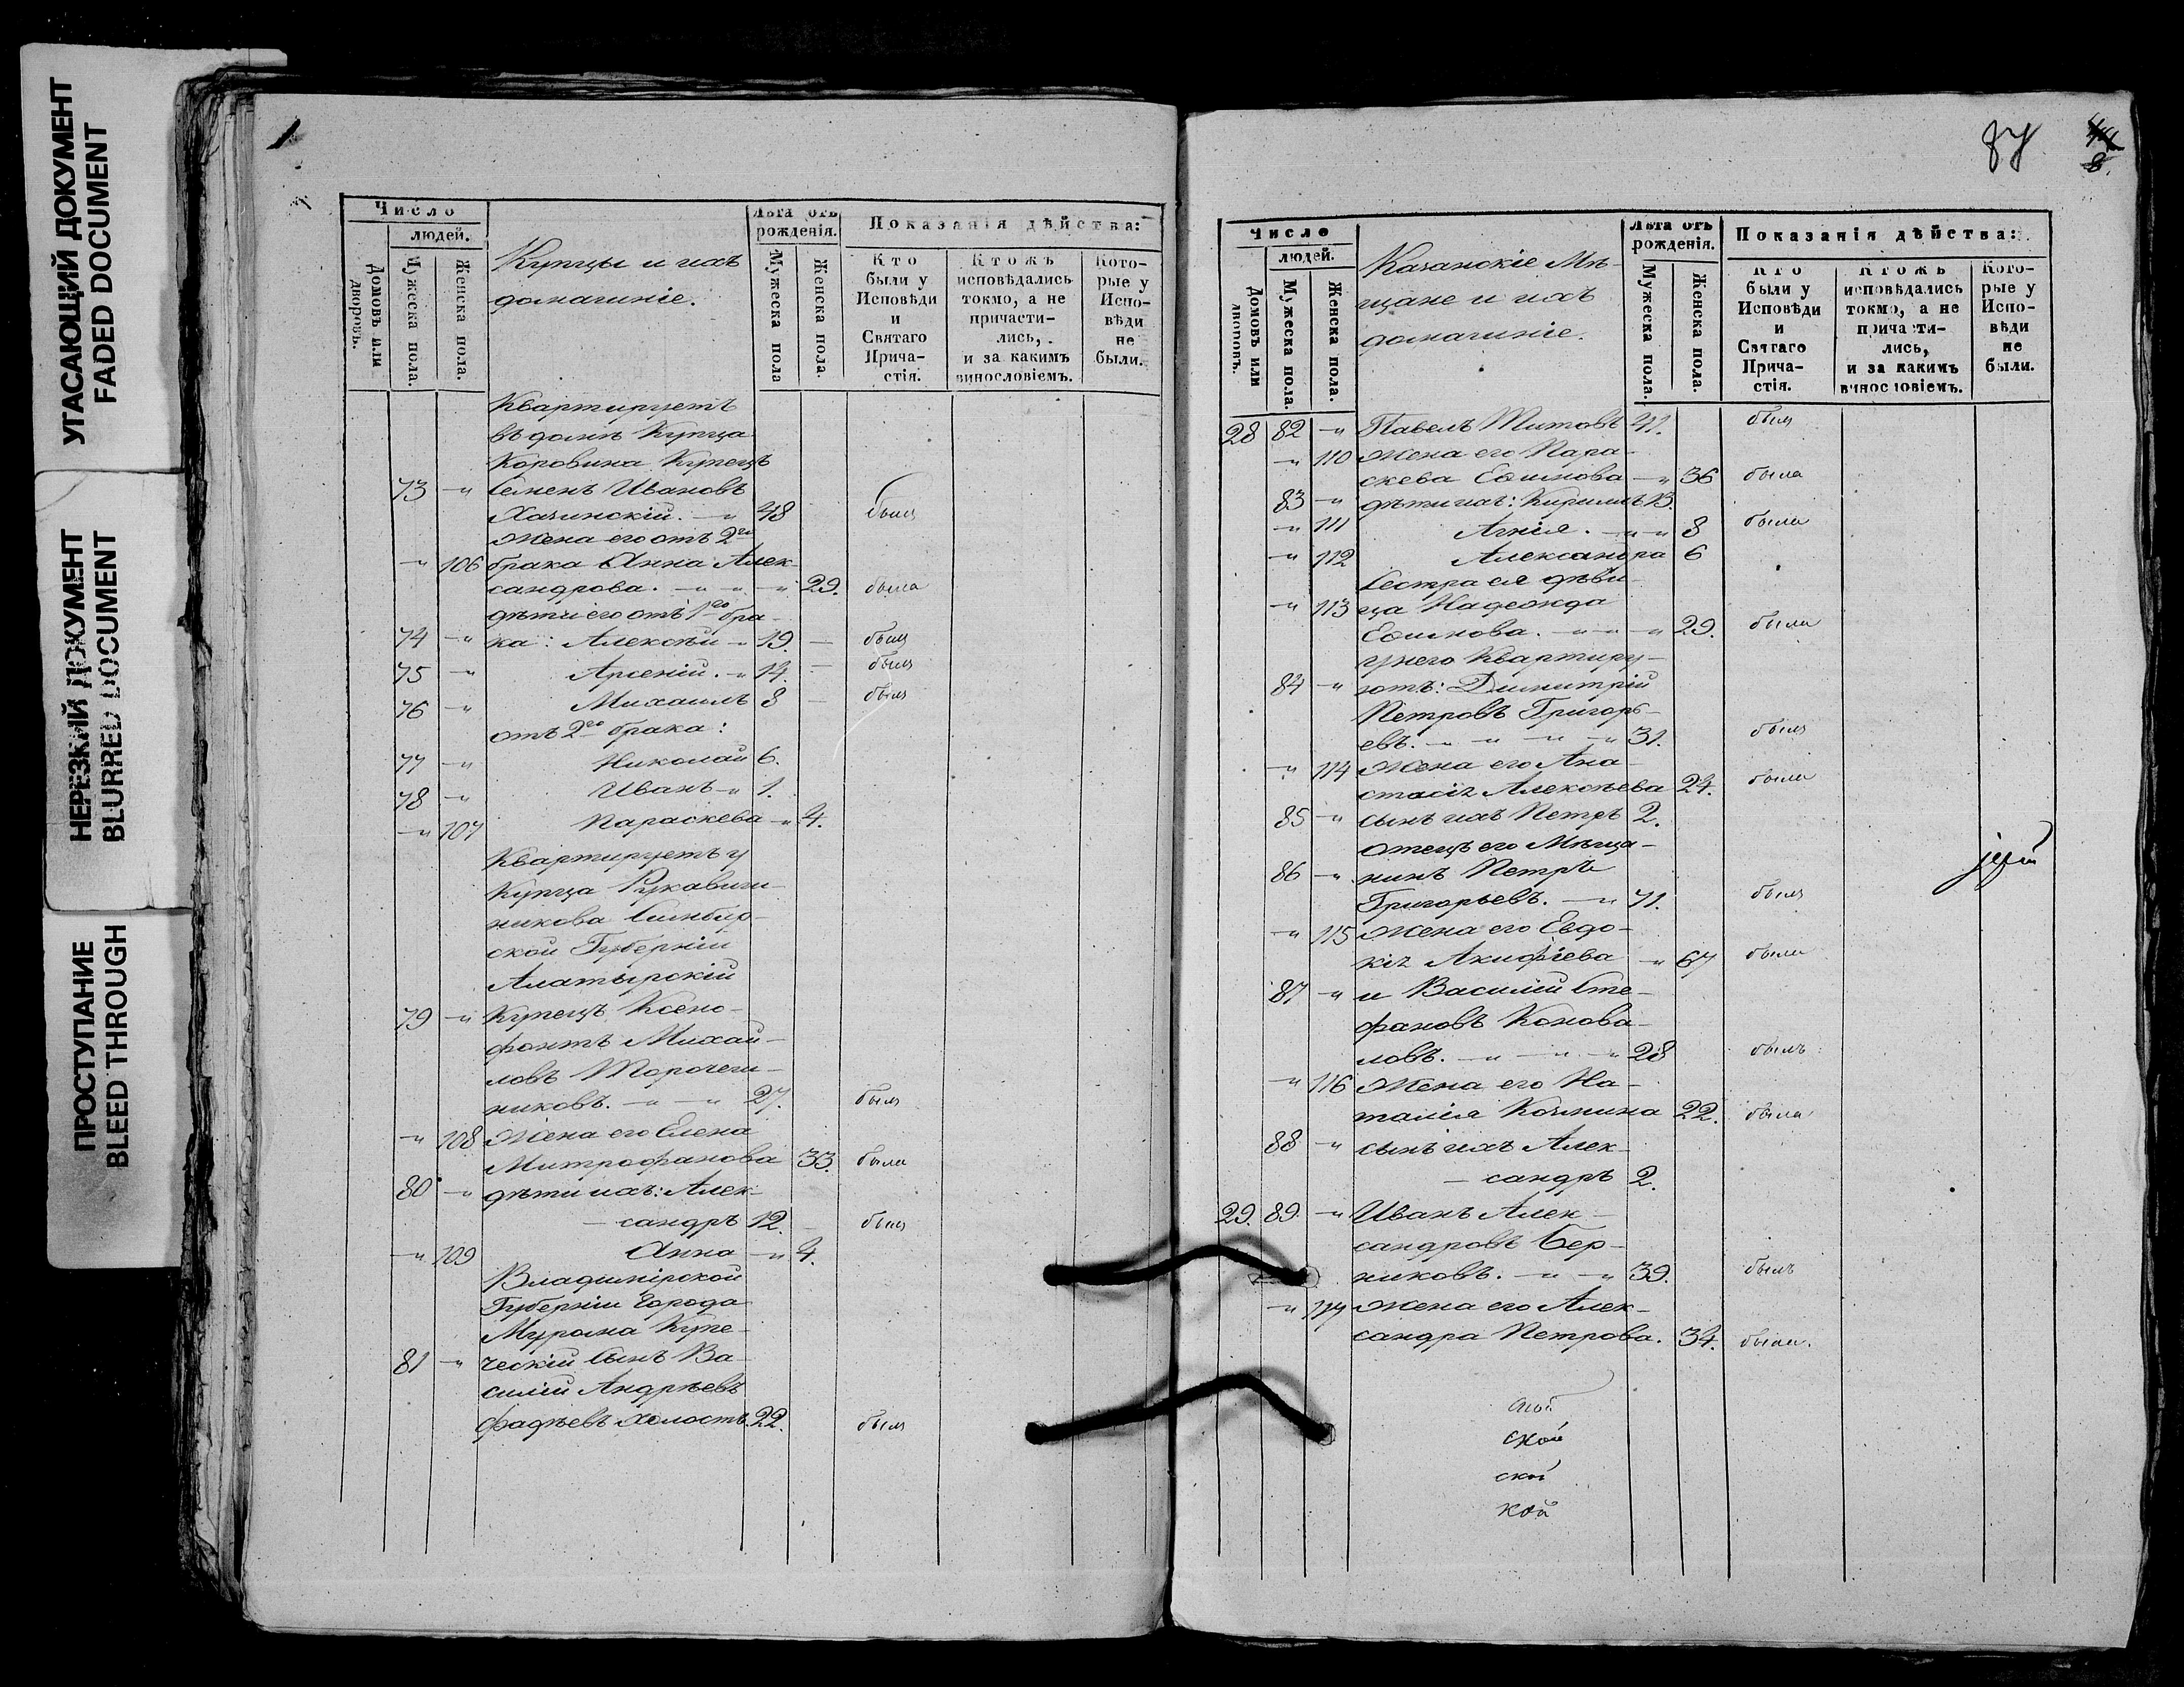 УГАСАЮЩИЙ ДОКУМЕНТ
FADED DOCUMENT
НЕРЕЗКИЙ ДОКУМЕНТ
BLURRED DOCUMENT
ПРОСТУПАНИЕ
BLEED THROUGH
1
Число
людей.
Домовъ или дворовъ.
Мужеска пола.
Женска пола.
Купцы и ихъ
домашніе.
Лѣта отъ
рожденія.
Мужеска пола
Женска пола.
Показанія дѣйства:
Кто были у Исповѣди и Святаго Прича- стія.
Ктожъ исповѣдались токмо, а не причасти- лись, и за какимъ винословіемъ.
Кото- рые у Испо- вѣди не были.
Квартируетъ
въ домѣ Купца
Коровина Купецъ
73 -"- Семенъ Ивановъ
Хачинскій. -"- 48 былъ
Жена его отъ 2го
-"- 106 брака Анна Алек-
сандрова. -"- -"- -"- 29. была
дѣти его отъ 1го бра-
74 -"- ка: Алексѣй -"- 19. - былъ
75 -"- Арсеній. -"- 14. - былъ
76 -"- Михаилъ 8 - былъ
отъ 2го брака:
77 -"- Николай 6.
78 -"- Иванъ -"- 1.
-"- 107 Параскева -"- 4.
Квартируетъ у
Купца Рукавиш-
никова Симбир-
ской Губерніи
Алатырскій
79 -"- Купецъ Ксено-
фонтъ Михай-
ловъ
никовъ. -"- -"- 27. былъ
-"- 108 Жена его Елена
Митрофанова 33. была
80 -"- дѣти ихъ: Алек-
- сандръ 12. - былъ
-"- 109 Анна -"- 4.
Владимірской
Губерніи Города
Мурома Купе-
81 -"- ческій Сынъ Ва-
силій Андрѣевъ
Фадѣевъ холостъ. 22. былъ
87
8.
Число
людей.
Домовъ или дворовъ.
Мужеска пола.
Женска пола.
Казанскіе Мѣ-
щане и ихъ
домашніе.
Лѣта отъ
рожденія.
Мужеска пола.
Женска пола.
Показанія дѣйства:
Кто были у Исповѣди и Святаго Прича- стія.
Ктожъ исповѣдались токмо, а не причасти- лись, и за какимъ винословіемъ.
Кото- рые у Испо- вѣди не были.
28 82 -"- Павелъ Титовъ 41. былъ
-"- 110 Жена его Пара-
скева Ефимова -"- 36 была
83 -"- дѣти ихъ: Кириллъ 13.
-"- 111 Агнія. -"- -"- 8 была
-"- 112 Александра 6
Сестра ея дѣви-
-"- 113 ца Надежда
Ефимова. -"- -"- -"- 29. была
у него Квартиру-
84 -"- ютъ: Димитрій
Петровъ Григорь-
евъ. -"- -"- -"- -"- 31. былъ
-"- 114 Жена его Ана-
стасія Алексѣева 24. была
85 -"- сынъ ихъ Петръ 2.
отецъ его Мѣща-
86 -"- нинъ Петръ
Григорьевъ. -"- 71. былъ
-"- 115 Жена его Евдо-
кія Акифіева -"- 67 была
87 -"- и Василій Сте-
фановъ Конова-
ловъ. -"- -"- -"- 28 былъ
-"- 116 Жена его На-
талія Козмина 22. была
88 -"- сынъ ихъ Алек-
- сандръ 2.
29. 89. -"- Иванъ Алек-
сандровъ Бер-
никовъ. -"- -"- 39. былъ
-"- 117 Жена его Алек-
сандра Петрова. 34. была.
ской
ской
кой